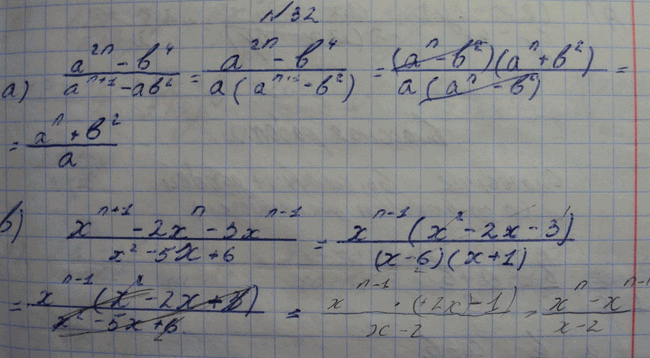 №32
а) (a^{2n} - b^4)/(a^{n+1} - ab^2) = (a^{2n} - b^4)/(a(a^{n+1} - b^2)) = ((a^n - b^2)(a^n + b^2))/(a(a^n - b^2)) =
= (a^n + b^2)/a
в) (x^{n+1} - 2x^n - 3x^{n-1})/(x^2 - 5x + 6) = (x^{n-1}(x^2 - 2x - 3))/((x-6)(x+1))
= (x^{n-1}(x^2 - 2x + 3))/(x^2 - 5x + 6) = (x^{n-1} · (+2x - 1))/(x-2) = (x^n - x^{n-1})/(x-2)